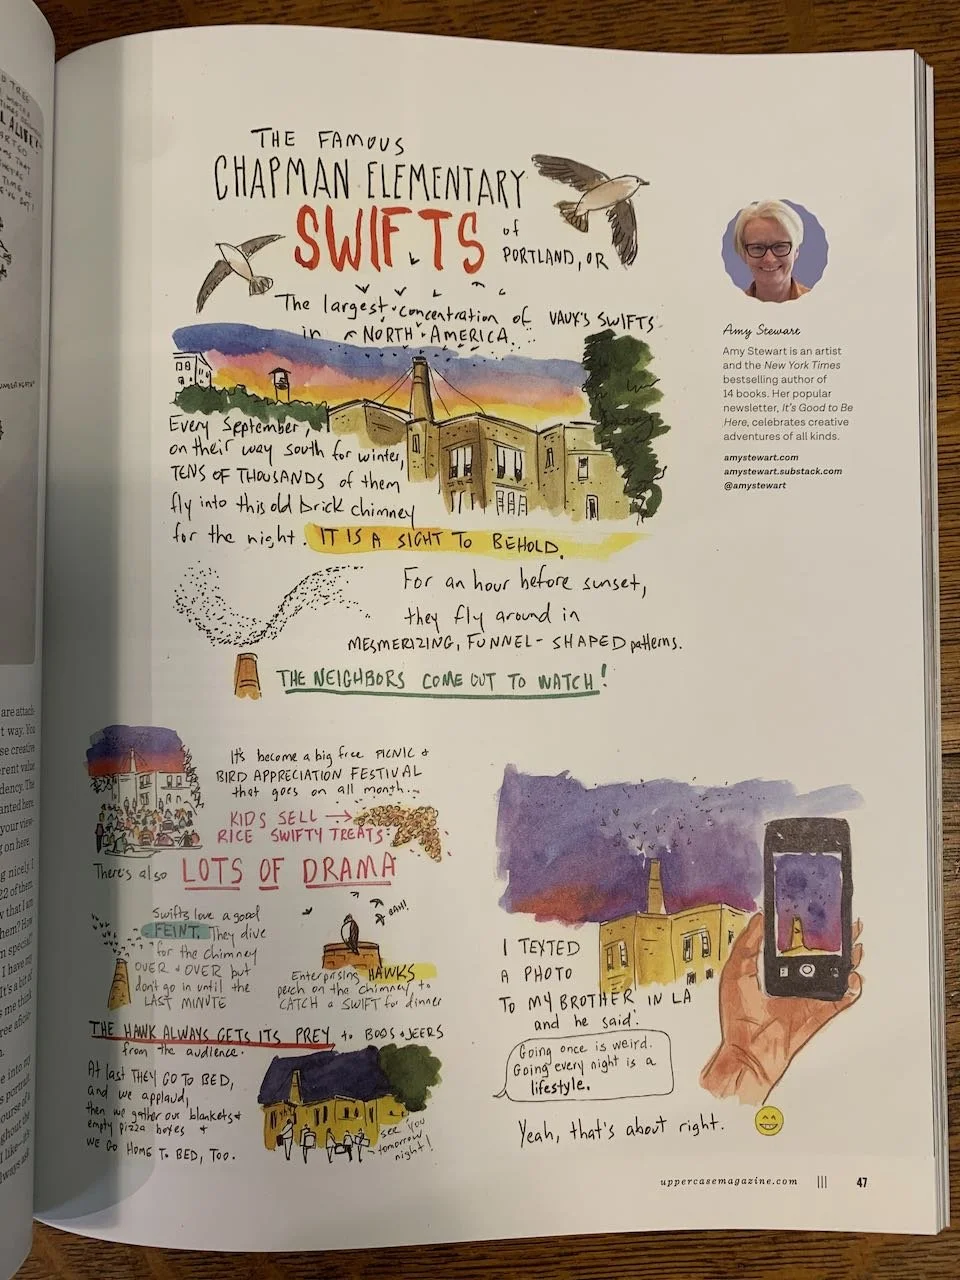 THE FAMOUS
CHAPMAN ELEMENTARY
SWIFTS
of
PORTLAND, OR
The largest concentration of VAUX'S SWIFTS
in NORTH AMERICA.
Every September,
on their way south for winter,
TENS OF THOUSANDS of them
fly into this old brick chimney
for the night. IT IS A SIGHT TO BEHOLD.
For an hour before sunset,
they fly around in
MESMERIZING, FUNNEL-SHAPED patterns.
THE NEIGHBORS COME OUT TO WATCH!
It's become a big free PICNIC &
BIRD APPRECIATION FESTIVAL
that goes on all month...
KIDS SELL →
RICE SWIFTY TREATS:
There's also LOTS OF DRAMA
Swifts love a good
FEINT. They dive
for the chimney
OVER & OVER but
don't go in until the
LAST MINUTE
BAH!
Enterprising HAWKS
perch on the chimney to
CATCH a SWIFT for dinner
THE HAWK ALWAYS GETS ITS PREY to BOOS & JEERS
from the audience.
At last THEY GO TO BED,
and we applaud,
then we gather our blankets &
empty pizza boxes &
we GO HOME TO BED, TOO.
see you
tomorrow
night!
I TEXTED
A PHOTO
TO MY BROTHER IN LA
and he said:
Going once is weird.
Going every night is a
lifestyle.
Yeah, that's about right.
Amy Stewart
Amy Stewart is an artist
and the New York Times
bestselling author of
14 books. Her popular
newsletter, It's Good to Be
Here, celebrates creative
adventures of all kinds.
amystewart.com
amystewart.substack.com
@amystewart
uppercasemagazine.com ||| 47